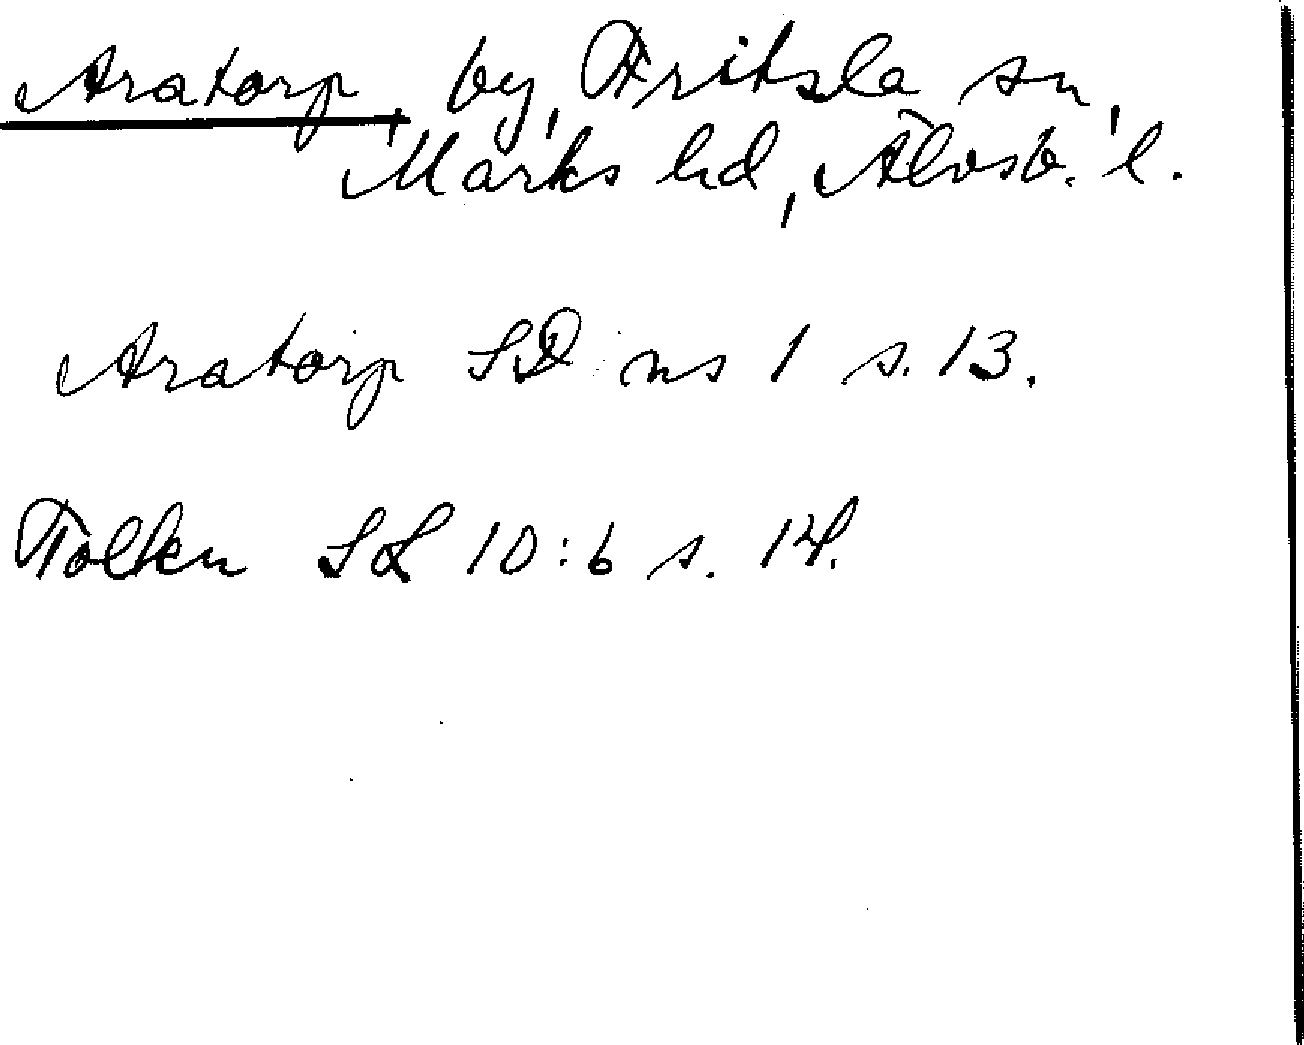 Aratorp, by, Fritsla sn,
Marks hd, Älvsb. l.
Aratorp SD ns 1 s. 13.
Tolkn SL 10:6 s. 14.